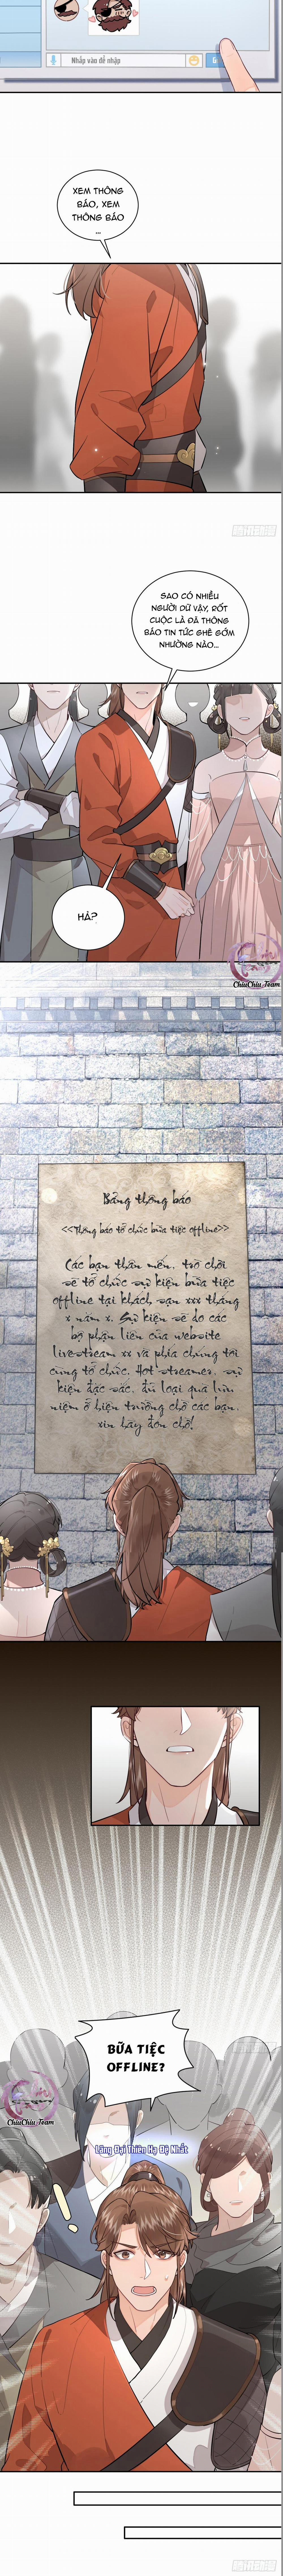 Nhắp vào để nhập
XEM THÔNG
BÁO, XEM
THÔNG BÁO
...
SAO CÓ NHIỀU
NGƯỜI DỮ VẬY, RỐT
CUỘC LÀ ĐÃ THÔNG
BÁO TIN TỨC GHÊ GỚM
NHƯỜNG NÀO...
HẢ?
ChiuChiu Team
Bảng thông báo
<<Thông báo tổ chức bữa tiệc offline>>
Các bạn thân mến, trò chơi
sẽ tổ chức sự kiện bữa tiệc
offline tại khách sạn xxx tháng
x năm x. Sự kiện sẽ do các
bộ phận liên của website
livestream xx và phía chúng tôi
cùng tổ chức. Hot streamer, sự
kiện đặc sắc, đủ loại quà lưu
niệm ở hiện trường chờ các bạn,
xin hãy đón chờ!
BỮA TIỆC
OFFLINE?
ChiuChiu Team
Lãng Đại Thiên Hạ Đệ Nhất